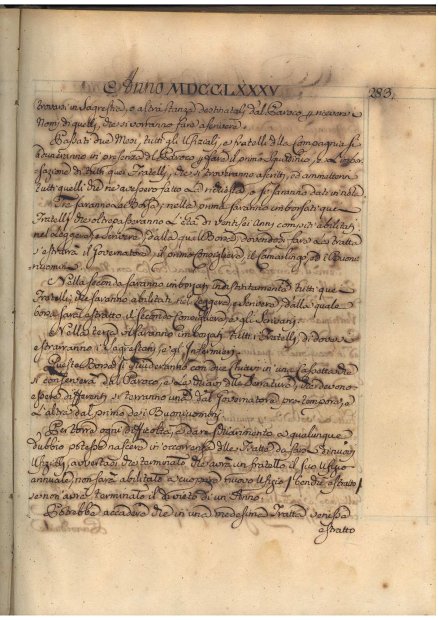 Anno MDCCLXXXV. 283.
trovarsi in Sagrestia, o altra stanza destinata dal Paroco p ricevere i
Nomi di quelli, che si vorranno fare ascrivere.
Passati due Mesi, tutti gli Ufiziali, e fratelli della Compagnia si
aduneranno in presenza del Paroco p fare il primo Squittinio, e
di tutti quei Fratelli, che si troveranno ascritti, ed ammettere
tutti quelli che ne avessero fatto la richiesta, e si saranno dati in nota.
Tre saranno le Borse; nella prima saranno imborsati quei
Fratelli che oltrepasseranno l'età di ventisei Anni compiti abilitati
nel leggere, e scrivere, dalla quale Borsa, dovendosi fare la tratta
s'estrarrà il Governatore, il primo Consigliere, il Camarlingo, ed il Buono
uomo.
Nella seconda saranno imborsati indistintamente tutti quei
Fratelli che saranno abilitati nel leggere, e scrivere, dalla quale
borsa sarà estratto il secondo Consigliere, e gli Scrivani.
Nella terza vi saranno imborsati tutti i Fratelli di dove si
estrarranno i Sagrestani, e gl'Infermieri.
Queste Borse si chiuderanno con due Chiavi in una Cassetta che
si conserverà dal Paroco, e le due della serratura, che devono
essere differenti si terranno una dal Governatore pro tempore, e
l'altra dal primo dei Buonuomini.
Per torre ogni difficoltà, e dare schiarimento a qualunque
dubbio potesse nascere in occorrenza delle Tratte da farsi de nuovi
Ufiziali, avverta si che terminato che avrà un fratello il suo Ufizio
annuale, non sarà abilitato a cuoprire nuovo Ufizio, benchè estratto,
se non avrà terminato il divieto di un Anno.
Potrebbe accadere che in una medesima Tratta venisse
estratto